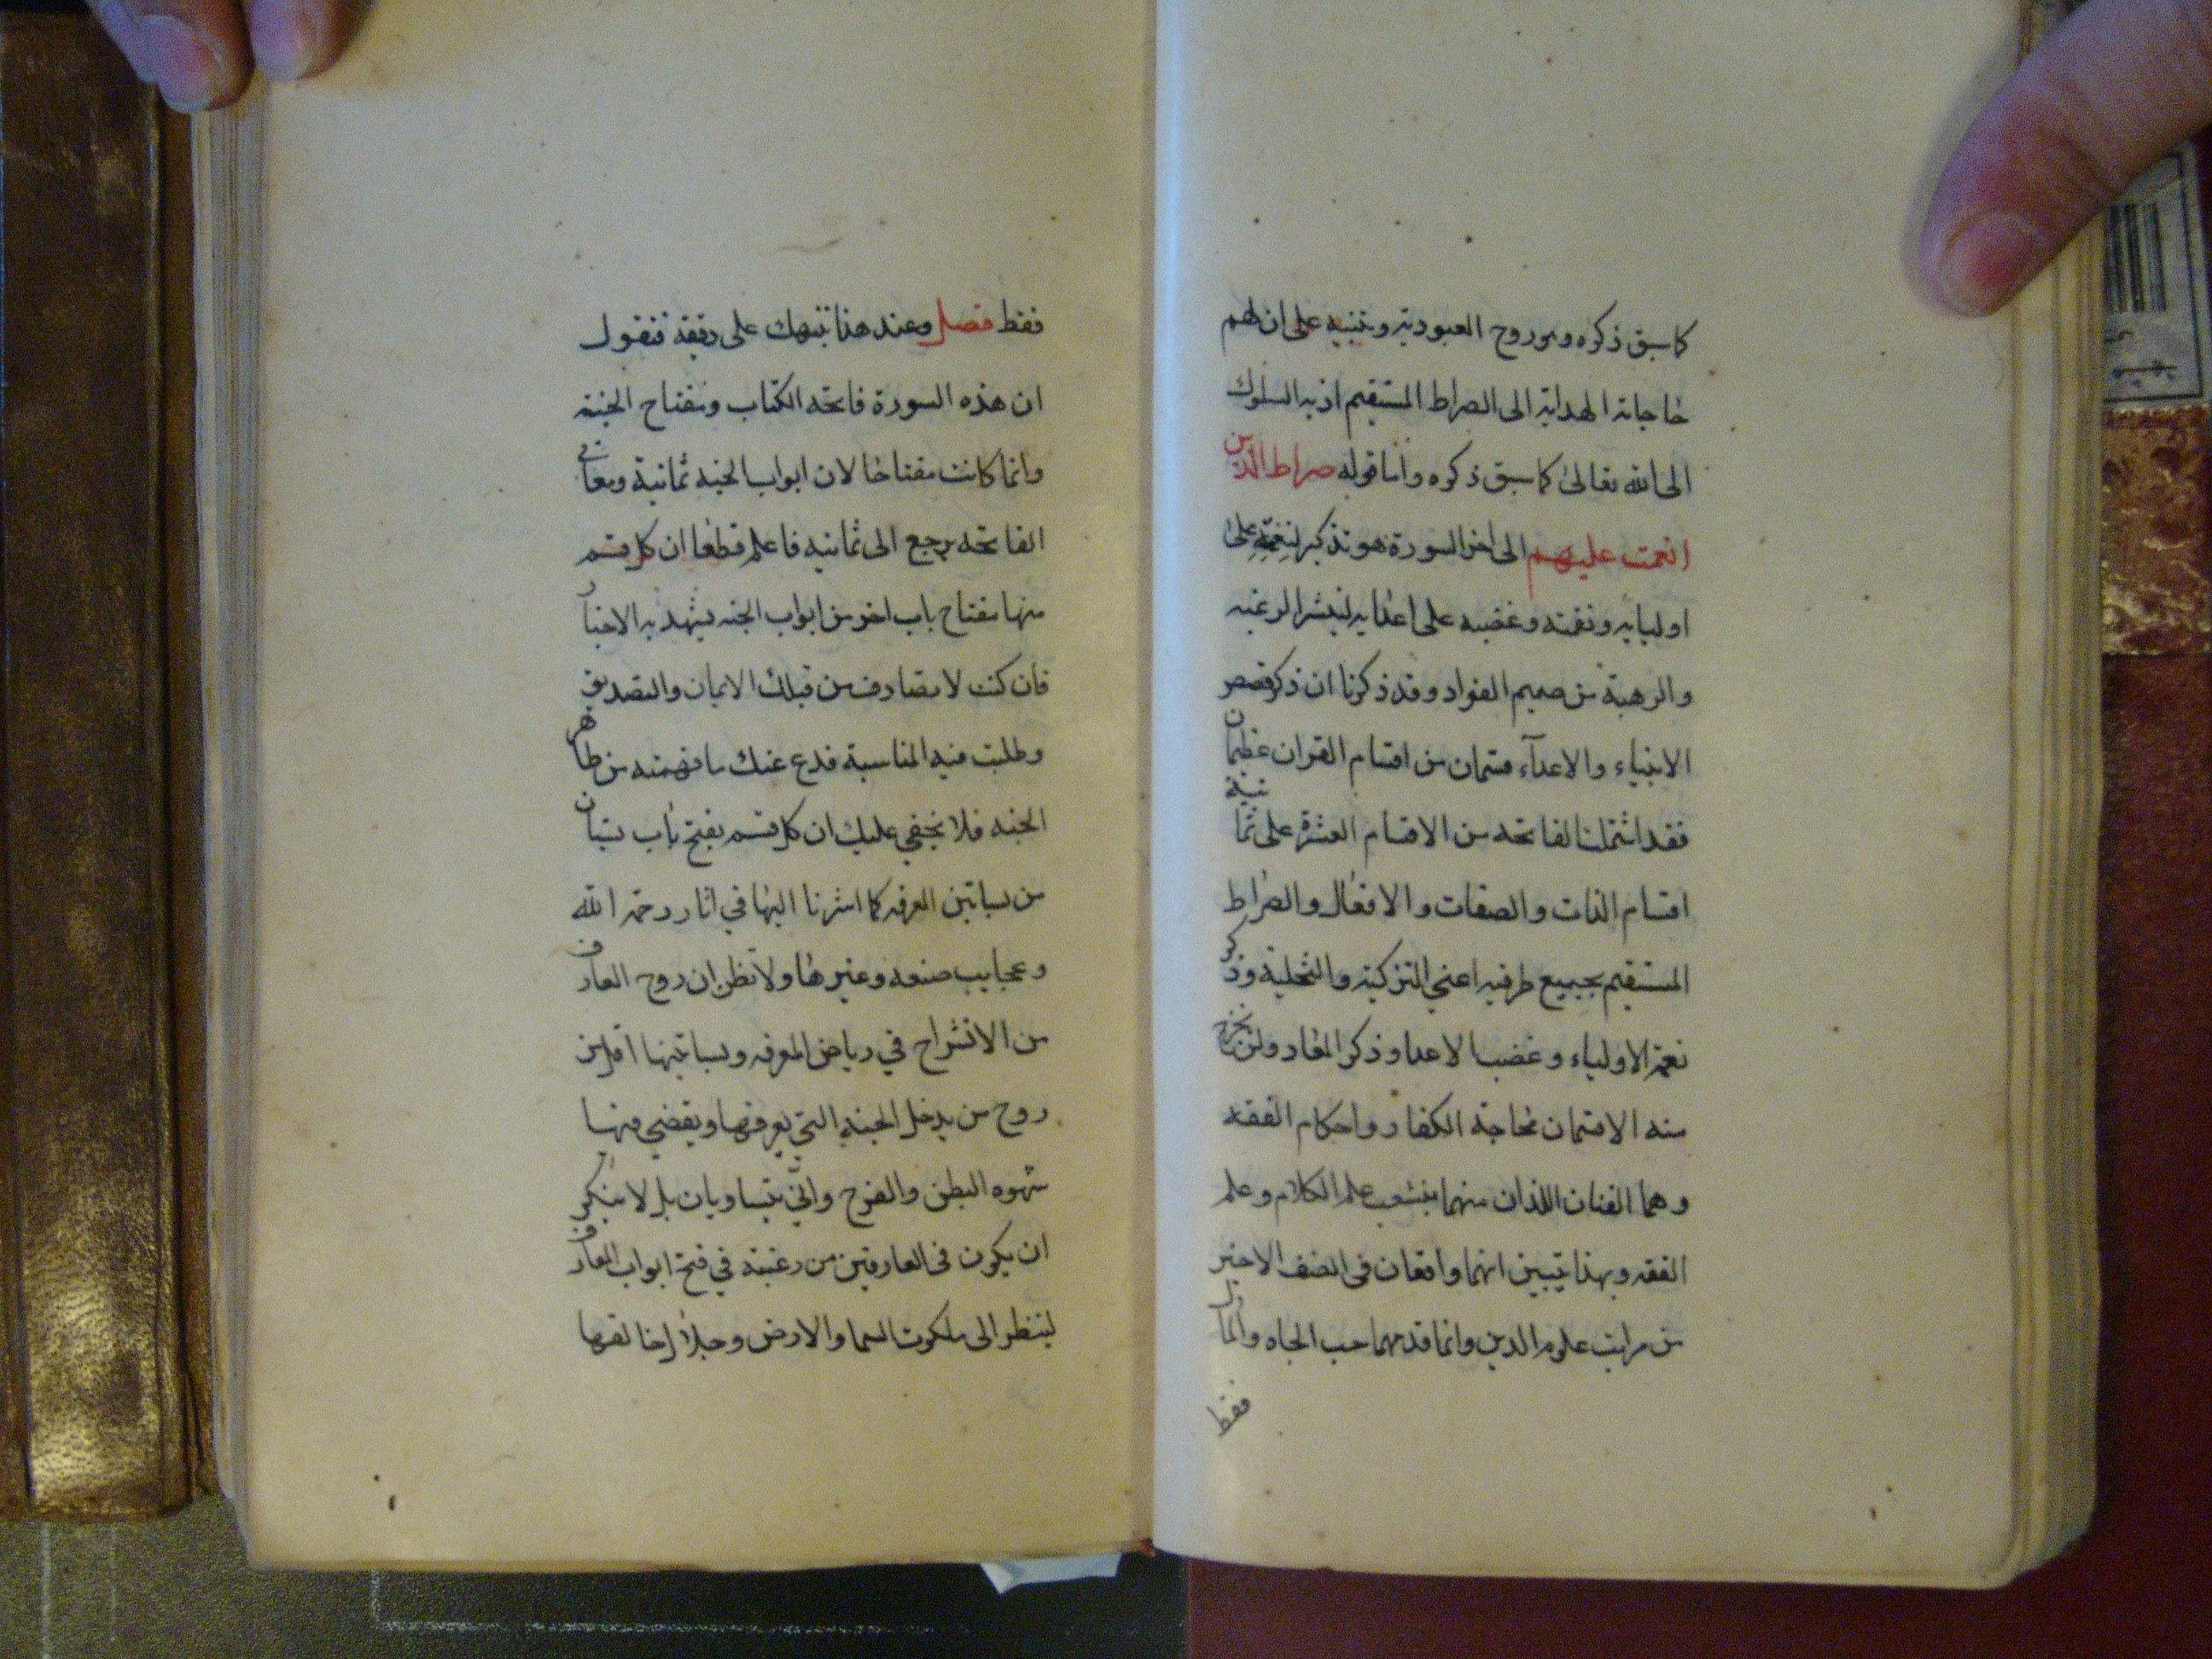 كما سبق ذكره وهو روح العبودية وتنبيه على ان لهم
حاجاته الهداية الى الصراط المستقيم اذ به السلوك
الى الله تعالى كما سبق ذكره واما قوله صراط الذين
انعمت عليهم الى اخر السورة هو تذكير لنعمته على
اوليايه ونقمته وغضبه على اعدايه ليتشر الرغبه
والرهبة من صميم الفواد وقد ذكرنا ان ذكر قصص
الانبياء والاعدآء قسمان من اقسام القران عظيمان
فقد اشتملت الفاتحه من الاقسام العشرة على ثمانية
اقسام الذات والصفات والافعال والصراط
المستقيم بجميع طرفيه اعني التزكية والتحلية وذكر
نعمة الاولياء وغضب الاعدا وذكر المعاد ولن يخرج
منه الا قسمان محاجة الكفار واحكام الفقه
وهما الفنان اللذان منهما ينشعب علم الكلام وعلم
الفقه وبهذا تبيين انهما واقعان فى الصنف الاخير
من مراتب علوم الدين وانما قدمهما حب الجاه والمال
فقط
فقط فصل وعند هذا ننبهك على دقيقة فنقول
ان هذه السورة فاتحة الكتاب ومفتاح الجنة
وانما كانت مفتاحا لان ابواب الجنه ثمانية ومعانى
الفاتحه يرجع الى ثمانيه فاعلم قطعا ان كل قسم
منها مفتاح باب اخر من ابواب الجنه يشهد به الاخبار
فان كنت لا تصادف من قبلك الايمان والتصديق
وطلبت فيه المناسبة فدع عنك ما فهمته من ظاهر
الجنه فلا يخفي عليك ان كل قسم يفتح باب بستان
من بساتين المعرفه كما اشرنا اليها في اثار رحمة الله
وعجايب صنعه وغيرها ولا تظن ان روح العارف
من الانشراح في رياض المعرفه وبساتينها اقل من
روح من يدخل الجنة التي يعرفها ويقضي فيها
شهوه البطن والفرج وانّي يتساويان بل لا ينكر
ان يكون فى العارفين من رغبته في فتح ابواب المعارف
لينظر الى ملكوت السما والارض وجلال خالقها